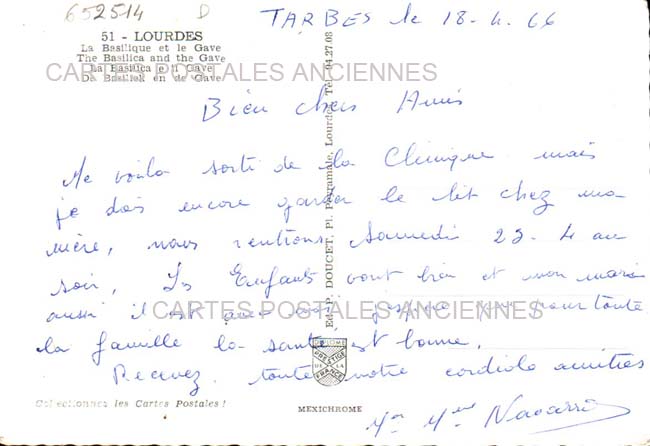 652514 D
TARBES le 18-4-66
51 - LOURDES
La Basilique et le Gave
The Basilica and the Gave
La Basilica e il Gave
De Basiliek en de Gave
CARTES POSTALES ANCIENNES
Bien chers Amis
Me voila sorti de la Clinique mais
je dois encore garder le lit chez ma
mère, nous rentions Samedi 23-4 au
soir, Les Enfants vont bien et mon mari
aussi il est avec moi, pour toute
CARTES POSTALES ANCIENNES
la famille la santé est bonne.
Recevez toute notre cordiale amitiés
Mr Mme Navarro
Edit. P. DOUCET, Pl. Peyramale, Lourdes, Tél. 94.27.08
PRESTIGE DE LA FRANCE
Collectionnez les Cartes Postales !
MEXICHROME